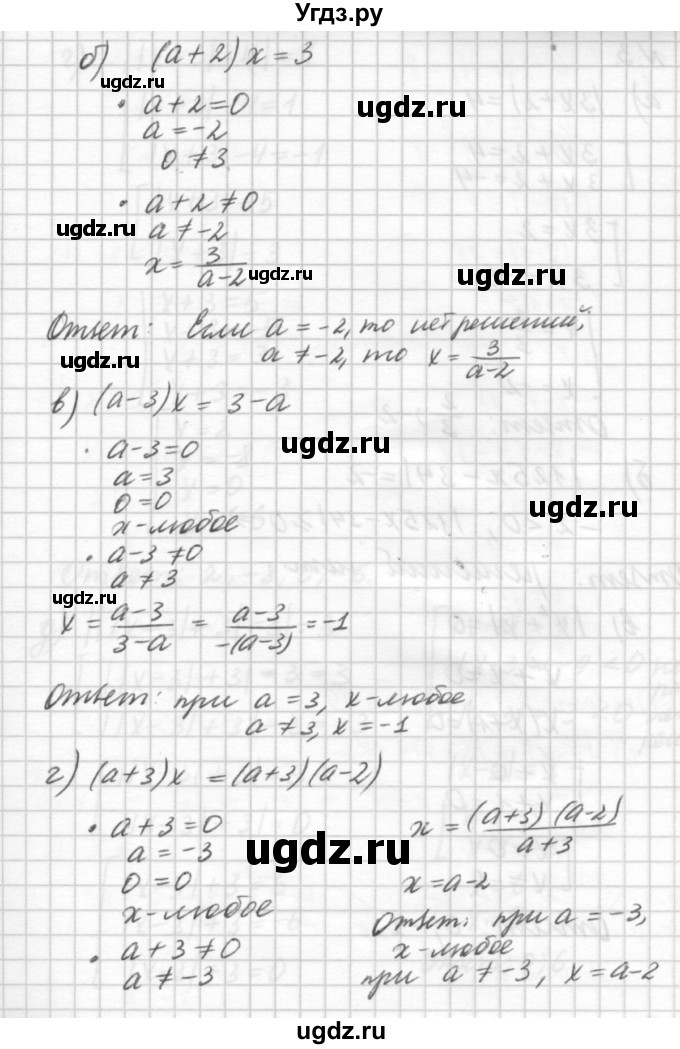 Угдз.ру
б) (a+2)x=3
ugdz.ru
• a+2=0
ugdz.ru
a=-2
0≠3
• a+2≠0
ugdz.ru
a≠-2
ugdz.ru
ugdz.ru
x=3/(a-2)
Ответ: Если a=-2, то нет решений;
ugdz.ru
a≠-2, то x=3/(a-2)
в) (a-3)x=3-a
ugdz.ru
• a-3=0
a=3
0=0
ugdz.ru
x-любое
• a-3≠0
a≠3
ugdz.ru
x=(a-3)/(3-a)=(a-3)/(-(a-3))=-1
Ответ: при a=3, x-любое
ugdz.ru
a≠3, x=-1
г) (a+3)x=(a+3)(a-2)
• a+3=0
a=-3
0=0
x-любое
• a+3≠0
a≠-3
ugdz.ru
x=((a+3)(a-2))/(a+3)
x=a-2
Ответ: при a=-3,
x-любое
при a≠-3, x=a-2
ugdz.ru
ugdz.ru